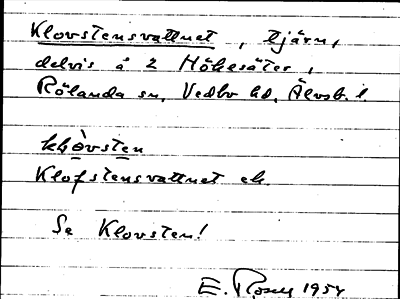 Klovstensvattnet, tjärn,
delvis å 2 Hökesäter,
Rölanda sn, Vedbo hd, Älvsb. l.
klòvsten
Klofstensvattnet ek.
Se Klovsten!
E. Rosell 1954